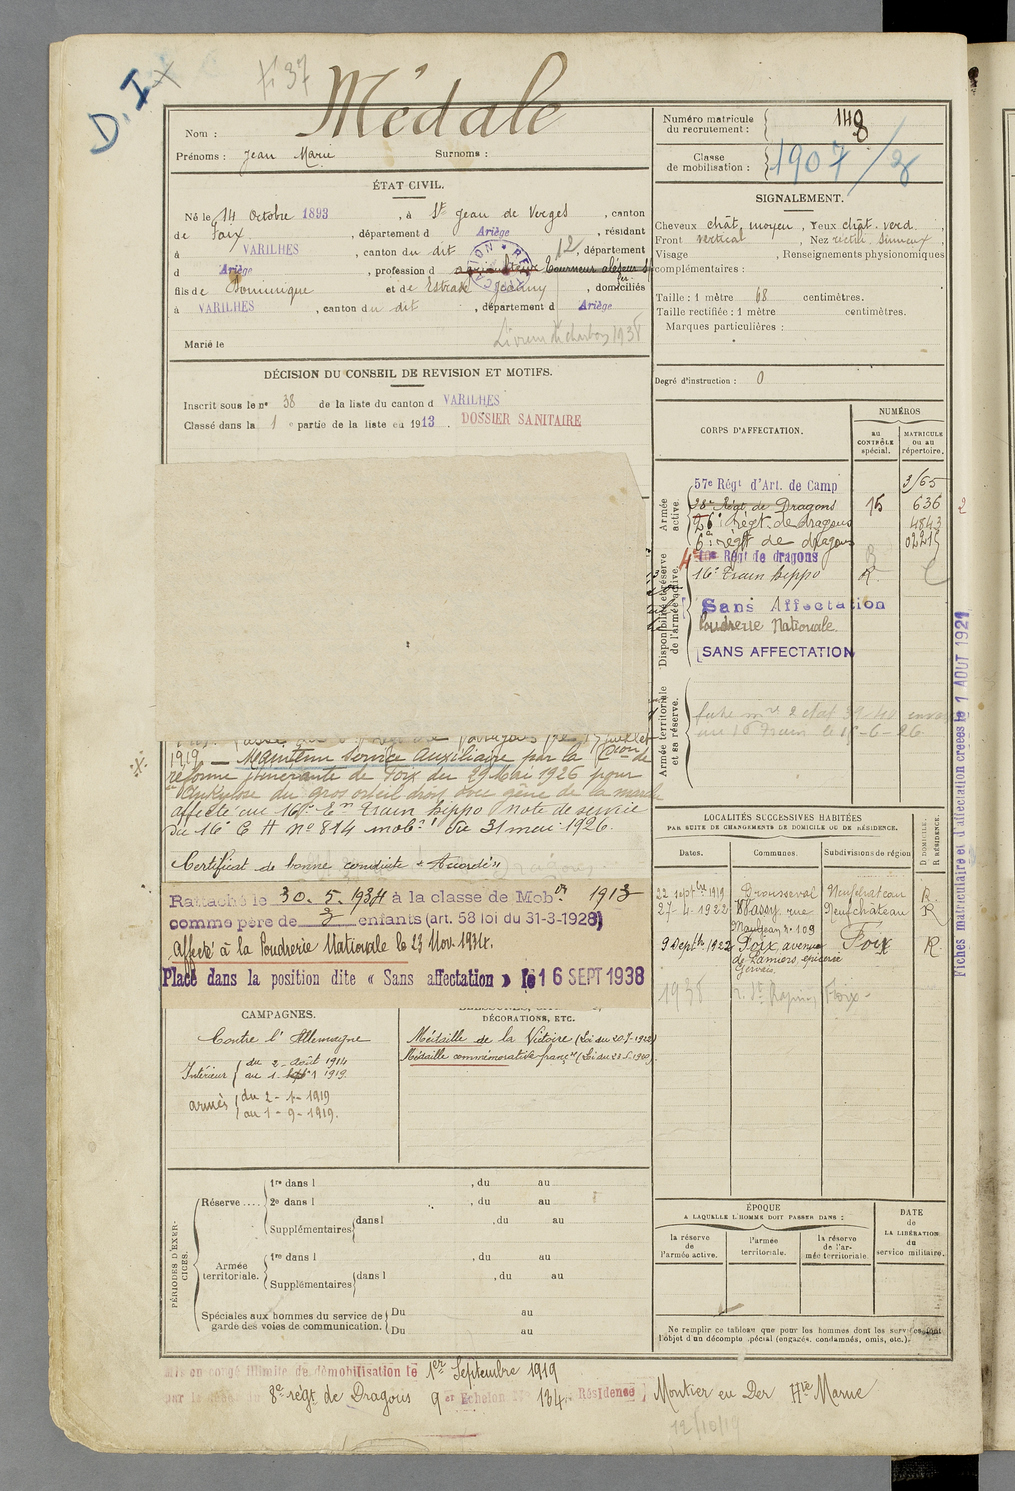 D. I
Médale
Nom :
Prénoms : Jean Marie Surnoms :
Numéro matricule
du recrutement : 148
Classe
de mobilisation : 1907 /
ÉTAT CIVIL.
Né le 14 Octobre 1893, à St Jean de Verges, canton
de Foix, département d Ariège, résidant
à VARILHES, canton du dit, département
d Ariège, profession d
fils de Dominique et de Estrade Jeanny, domiciliés
à VARILHES, canton du dit, département d Ariège
Marié le
1938
SIGNALEMENT.
Cheveux chât. moyen, Yeux chât. verd.
Front vertical, Nez rectil. sinueux
Visage , Renseignements physionomiques
complémentaires :
Taille : 1 mètre 68 centimètres.
Taille rectifiée : 1 mètre centimètres.
Marques particulières :
Degré d'instruction : 0
DÉCISION DU CONSEIL DE REVISION ET MOTIFS.
Inscrit sous le n° 38 de la liste du canton d VARILHES
Classé dans la 1 e partie de la liste en 1913. DOSSIER SANITAIRE
CORPS D'AFFECTATION.
NUMÉROS
AU CONTRÔLE spécial.
MATRICULE OU AU répertoire.
Armée active.
57e Régt d'Art. de Camp
28e Régt de Dragons 15 636
26e régt. de dragons 4843
6e régt de dragons
Régt de dragons
Disponibilité et réserve de l'armée active.
16e Train hippo R.
Sans Affectation
Poudrerie Nationale
SANS AFFECTATION
Armée territoriale et sa réserve.
Fiches matriculaire et d'affectation créées le 1 AOUT 1921
1919 — Maintenu Service Auxiliaire par la Con de
réforme itinérante de Foix du 29 Mai 1926 pour
"Ankylose du gros orteil droit avec gêne de la marche
affecté au 16e En Train hippo note de service
du 16e E H n° 814 mobon du 31 mai 1926.
Certificat de bonne conduite "Accordé"
Rattaché le 30. 5. 1934 à la classe de Mobon 1913
comme père de enfants (art. 58 loi du 31-3-1928)
Affecté à la Poudrerie Nationale le 29 Nov. 1934.
Placé dans la position dite « Sans affectation » le 16 SEPT 1938
LOCALITÉS SUCCESSIVES HABITÉES
PAR SUITE DE CHANGEMENTS DE DOMICILE OU DE RÉSIDENCE.
D DOMICILE.
R RÉSIDENCE.
Dates. Communes. Subdivisions de région
22 septbre 1919 Brousseval Neufchateau R.
27-4-1922 Wassy rue Neufchâteau R
Mauljean n. 109
9 Septbre 1922 Foix avenue Foix R.
de Pamiers épicerie
Gervais.
1938 Foix
CAMPAGNES.
Contre l'Allemagne
Intérieur du 2 Août 1914
au 1 1919
armées du 2 - 1 - 1919
au 1 - 9 - 1919.
DÉCORATIONS, ETC.
Médaille de la Victoire (Loi du 20-7-1922)
Médaille commémorative franç.se
PÉRIODES D'EXERCICES.
Réserve .... 1re dans l , du au
2e dans l , du au
Supplémentaires dans l , du au
Armée territoriale. 1re dans l , du au
Supplémentaires dans l , du au
Spéciales aux hommes du service de Du au
garde des voies de communication. Du au
ÉPOQUE
A LAQUELLE L'HOMME DOIT PASSER DANS :
la réserve de l'armée active.
l'armée territoriale.
la réserve de l'armée territoriale.
DATE de LA LIBÉRATION du service militaire.
Ne remplir ce tableau que pour les hommes dont les services font
l'objet d'un décompte spécial (engagés, condamnés, omis, etc.).
Mis en congé illimité de démobilisation le 1er Septembre 1919
par le 8e régt de Dragons 9er Echelon N° 134. Résidence Montier en Der Hte Marne
12/10/19